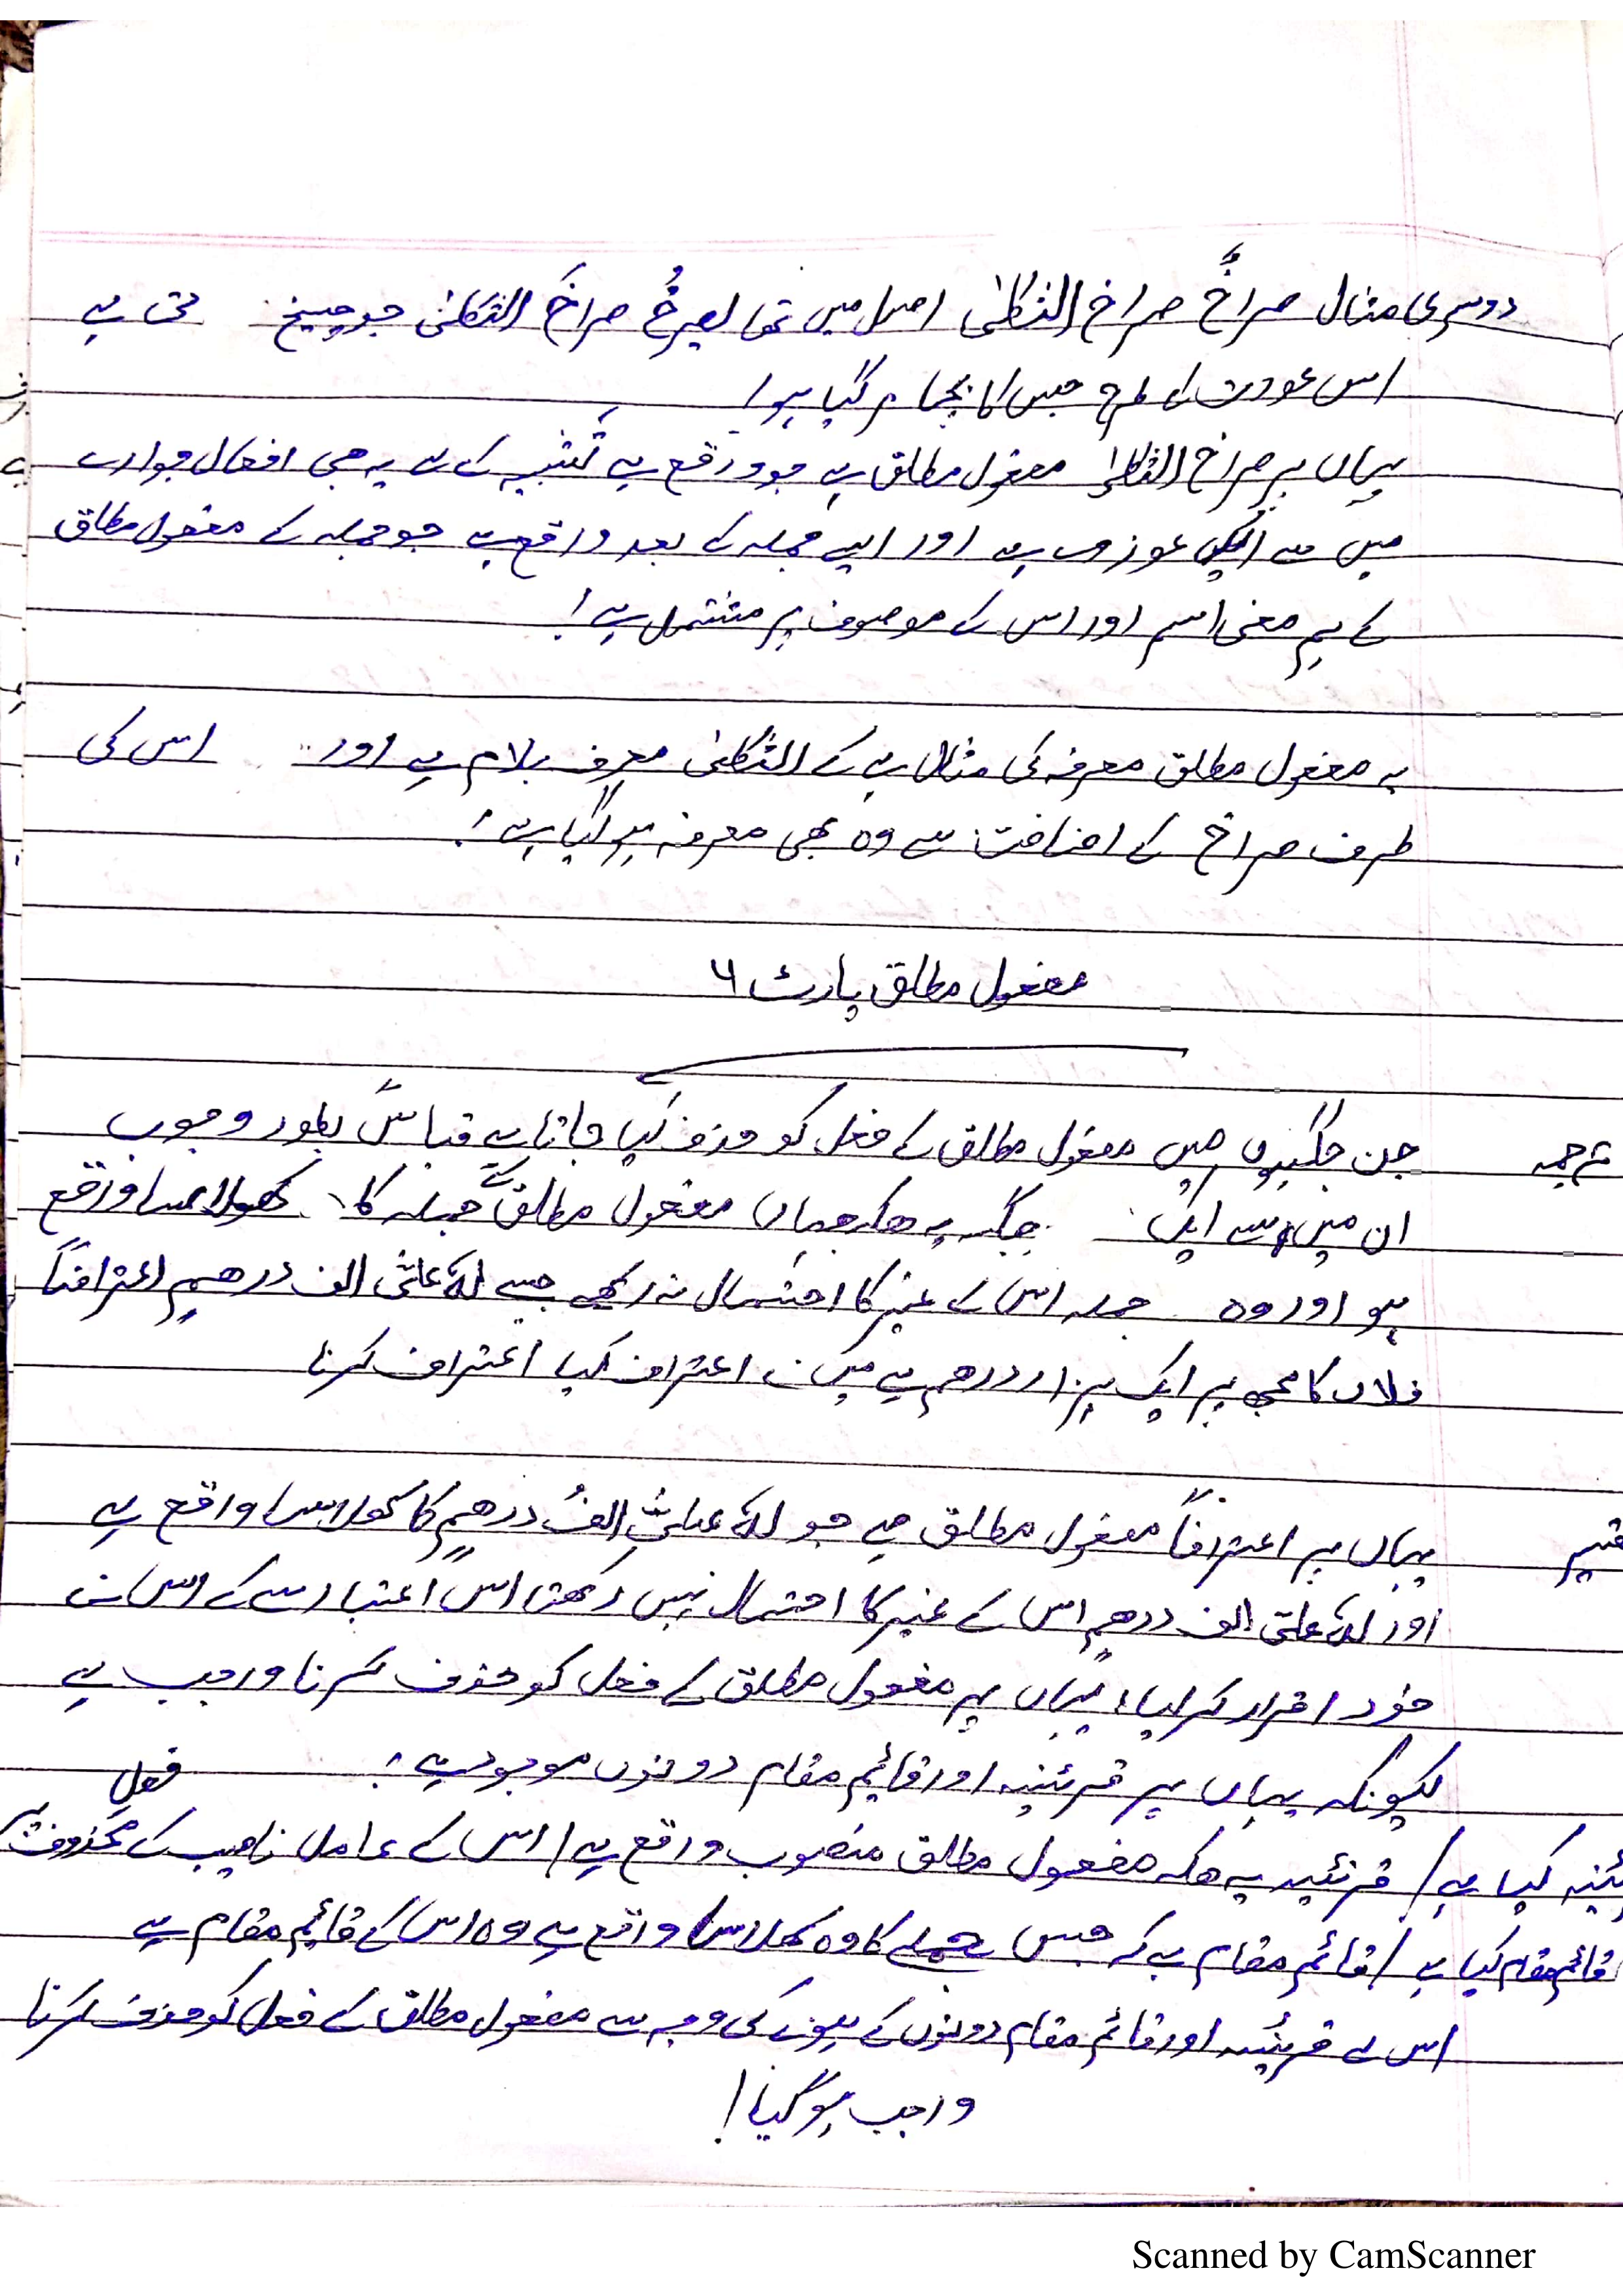 دوسری مثال صراخٌ صراخ الثکلیٰ اصل میں تھا یصرخُ صراخَ الثکلیٰ جو چیخ تی ہے
اس عورت کی طرح جس کا بچہ مر گیا ہو!
یہاں پر صراخ الثکلیٰ مفعول مطلق ہے جو واقع ہے تشبیہ کے لئے یہ بھی افعال جوارح
میں سے ایک اور ایسے جملہ کے بعد واقع ہے جو جملہ کے مفعول مطلق
کے ہم معنی اسم اور اس کے موصوف پر مشتمل ہے!
یہ مفعول مطلق معرفہ کی مثال ہے کے الثکلیٰ معرف بلام ہے اور اس کی
طرف صراخ کے اضافت سے وہ بھی معرفہ ہو گیا ہے!
مفعول مطلق پارٹ ٦
ترجمہ جن جگہوں میں مفعول مطلق کے فعل کو حذف کیا جاتا ہے قیاسً بطور وجوب
ان میں سے ایک جگہ یہ ھکہ جہاں مفعول مطلق جملہ کا کھولاسا واقع
ہو اور وہ جملہ اس کے غیر کا احتمال نہ رکھے جیسے لہٗ علیَّ الف درھمٍ اعترافًا
فلاں کا مجھ پر ایک ہزار درھم ہے میں نے اعتراف کیا اعتراف کرنا
یہاں پر اعترافًا مفعول مطلق ھے جو لہٗ علیَّ الفُ درھمٍ کا کھولاسا واقع ہے
اور لہٗ علیَّ الف درھمٍ اس کے غیر کا احتمال نہیں رکھتا اس اعتبار سے کے اس نے
خود اقرار کر لیا، یہاں پر مفعول مطلق کے فعل کو حذف کرنا واجب ہے
کیونکہ یہاں پر قرئینہ اور قائم مقام دونوں موجود ہے!
فعل
کیا ہے/ قرئینہ یہ ھکہ مفعول مطلق منصوب واقع ہے/ اس کے عامل ناصب کے محذوف پر
قائم مقام کیا ہے/ قائم مقام ہے کہ جس جملے کا وہ کھلاسا واقع ہے وہ اس کے قائم مقام ہے
اس لے قرئینہ اور قائم مقام دونوں کے ہونے کی وجہ سے مفعول مطلق کے فعل کو حذف کرنا
واجب ہو گیا!
Scanned by CamScanner